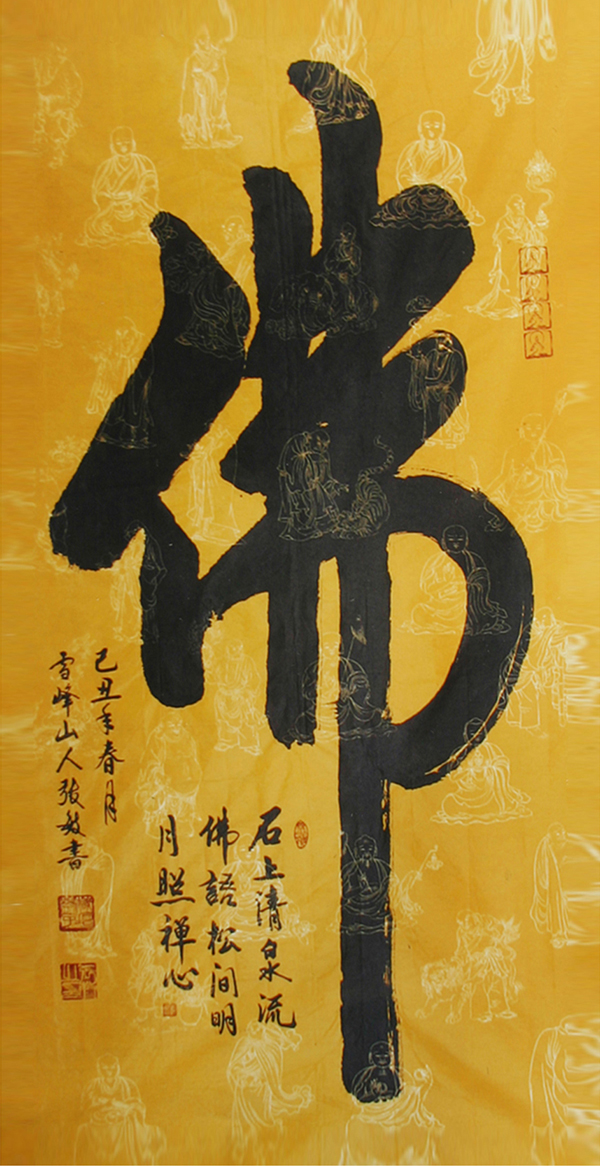 佛
石上清泉流
佛語松间明
月照禅心
己丑年春月
雪峰山人張敏書